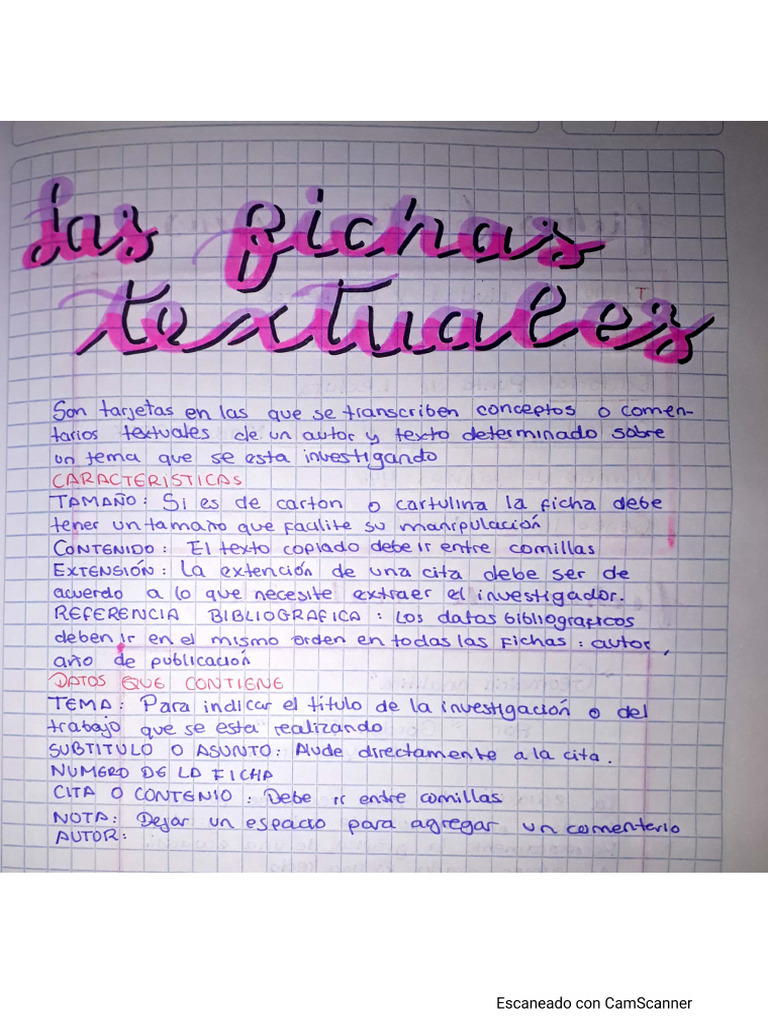 Las fichas
textuales
Son tarjetas en las que se transcriben conceptos o comen-
tarios textuales de un autor y texto determinado sobre
un tema que se esta investigando
CARACTERISTICAS
TAMAÑO: Si es de carton o cartulina la ficha debe
tener un tamaño que facilite su manipulación
CONTENIDO: El texto copiado debe ir entre comillas
EXTENSIÓN: La extención de una cita debe ser de
acuerdo a lo que necesite extraer el investigador.
REFERENCIA BIBLIOGRAFICA: Los datos bibliograficos
deben ir en el mismo orden en todas las fichas: autor,
año de publicación
DATOS QUE CONTIENE
TEMA: Para indicar el título de la investigación o del
trabajo que se esta realizando
SUBTITULO O ASUNTO: Alude directamente a la cita.
NUMERO DE LA FICHA
CITA O CONTENIO: Debe ir entre comillas
NOTA: Dejar un espacio para agregar un comenterio
AUTOR:
Escaneado con CamScanner